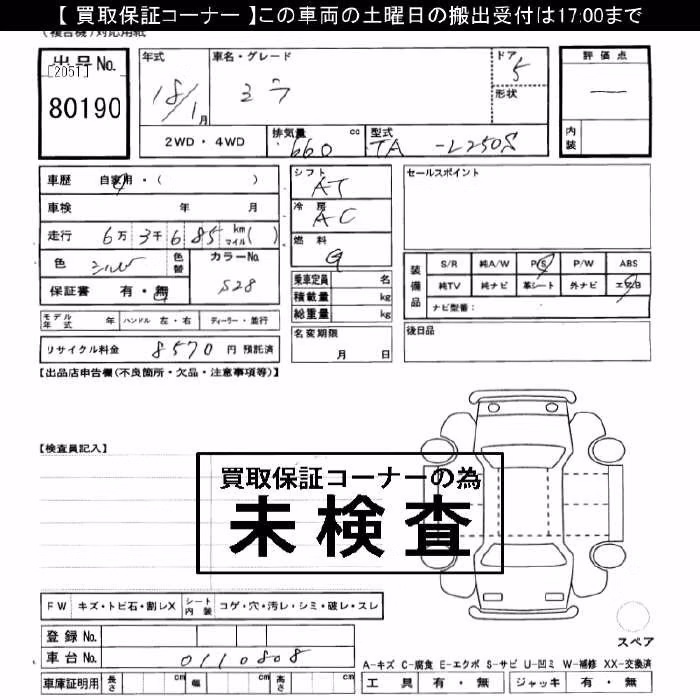 【 買取保証コーナー 】この車両の土曜日の搬出受付は17:00まで
(複合機)対応用紙
出品No.
[2051]
80190
年式 18/1月
車名・グレード ミラ
ドア 5
形状
評価点 —
内装
2WD・4WD
排気量 660 cc
型式 TA-L250S
車歴 自家用・( )
車検 年 月
走行 6万3千685 km マイル( )
色 シルバ 色替 カラーNo. S28
保証書 有・無
シフト AT
冷房 AC
燃料 G
乗車定員 名
積載量 kg
総重量 kg
セールスポイント
装備品
S/R 純A/W P/S P/W ABS
純TV 純ナビ 革シート 外ナビ エアB
ナビ型番:
モデル年式 年 ハンドル 左・右 ディーラー・並行
リサイクル料金 8570 円 預託済
名変期限 月 日
後日品
【出品店申告欄(不良箇所・欠品・注意事項等)】
【検査員記入】
買取保証コーナーの為
未検査
FW キズ・トビ石・割レX シート内装 コゲ・穴・汚レ・シミ・破レ・スレ
スペア
登録No.
車台No. 0110808
A-キズ C-腐食 E-エクボ S-サビ U-凹ミ W-補修 XX-交換済
車庫証明用 長さ cm 幅 cm 高さ cm
工具 有・無 ジャッキ 有・無